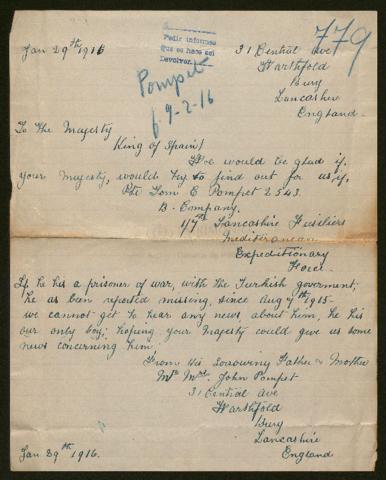 779
Pedir informes
Que se hace así
Devolver.
Jan 29th 1916
31 Central Ave
Starthfold
Bury
Lancashire
England.
Pompet
f. 9-2-16
To The Majesty
King of Spain
We would be glad if
your Majesty, would try to find out for us, if,
Pte Tom C Pompet 2543.
B. Company.
1/7th Lancashire Fusiliers
Mediteranean
Expeditionary
Force.
If he his a prisoner of war, with the Turkish goverment;
he as been reported missing, since Aug 7th 1915-
we cannot get to hear any news, about him, he his
our only boy; hoping your Majesty could give us some
news concerning him,
From His Father & Mother
Mr Mrs. John Pompet
31 Central Ave
Starthfold
Bury
Lancashire
England
Jan 29th 1916.